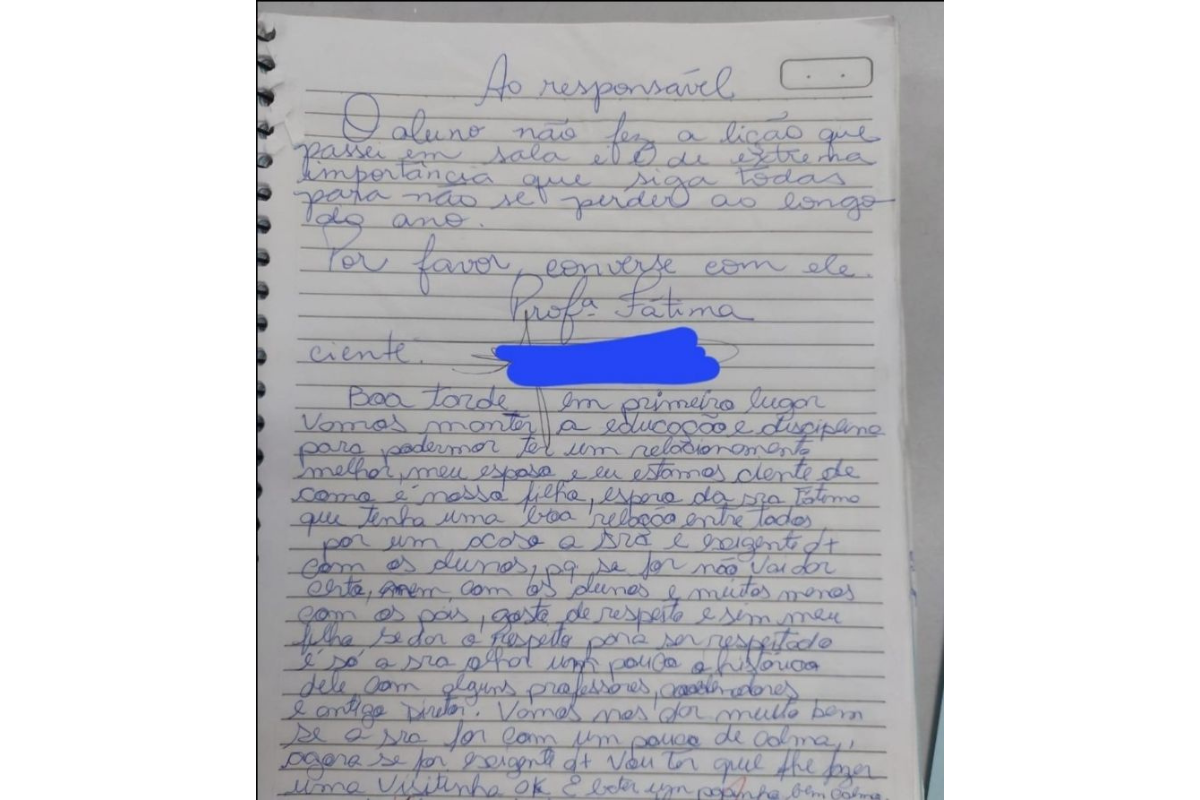 Ao responsável
O aluno não fez a lição que
passei em sala e é de extrema
importância que siga todas
para não se perder ao longo
do ano.
Por favor, converse com ele.
Profª. Fátima
ciente.
Boa tarde em primeiro lugar
Vamos manter a educação e disciplina
para podermor ter um relacionamento
melhor, meu esposo e eu estamos ciente de
como é nosso filho, espero da sra Fátima
que tenha uma boa relação entre todos,
por um acaso a sra é exigente d+
com os alunos, pq se for não vai dar
certo, nem com os alunos e muitos menos
com os pais, gosto de respeito e sim meu
filho se dar o respeito para ser respeitado
é só a sra olhar um pouco o histórico
dele com alguns professores,
e antigo Diretor. Vamos nos dar muito bem
se a sra for com um pouco de calma,
agora se for exigente d+ vou ter que lhe fazer
uma visitinha ok E bater um papinho bem calmo.